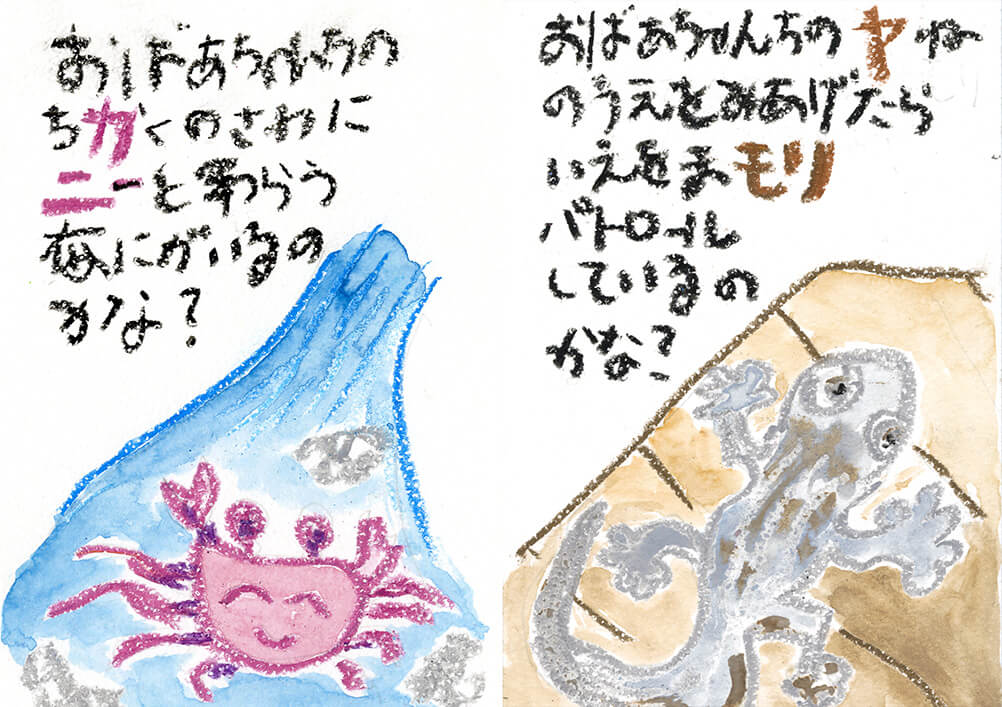 おばあちゃんちの
ちカくのさわに
ニーとわらう
なにがいるの
かな？
おばあちゃんちのヤね
のうえをみあげたら
いえをまモリ
パトロール
しているの
かな？